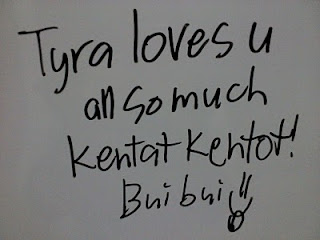 Tyra loves u
all so much
kentat kentot!
Bui bui!!